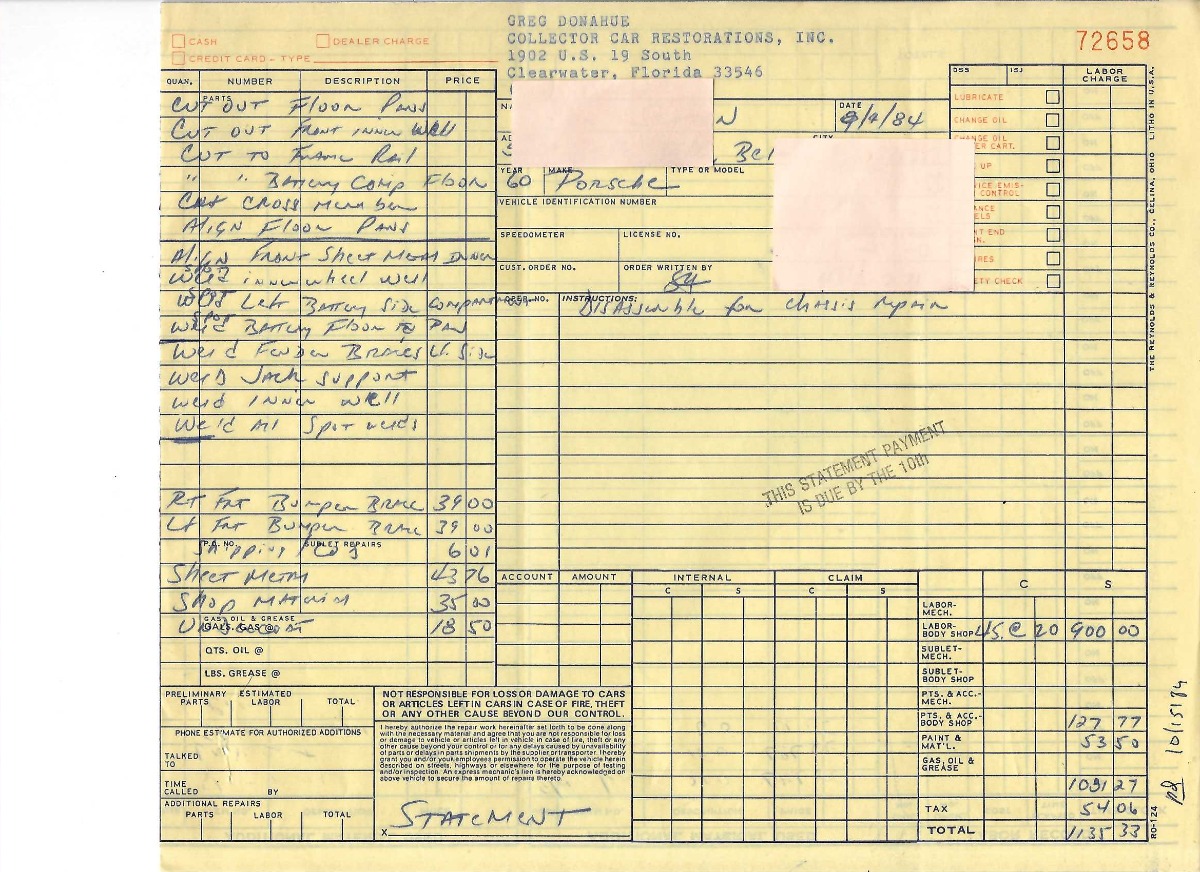 GREG DONAHUE
COLLECTOR CAR RESTORATIONS, INC.
1902 U.S. 19 South
Clearwater, Florida 33546
72658
CASH
DEALER CHARGE
CREDIT CARD - TYPE
QUAN.
NUMBER
DESCRIPTION
PRICE
PARTS
CUT OUT FLOOR PANS
CUT OUT FRONT INNER WELL
CUT TO FRAME RAIL
" " BATTERY COMP FLOOR
CROSS MEMBER
ALIGN FLOOR PANS
ALIGN FRONT SHEET METAL INNER
SPOT
WELD INNERWHEEL WELL
SPOT
WELD LEFT BATTERY SIDE COMPARTMENT
SPOT
WELD BATTERY FLOOR TO PANS
WELD FENDER BRACES LT. SIDE
WELD JACK SUPPORT
WELD INNER WELL
WELD ALL SPOT WELDS
RT FRT BUMPER BRACE 39 00
LT FRT BUMPER BRACE 39 00
P.O. NO.
SUBLET REPAIRS
SHIPPING / COD 6 01
SHEET METAL 43 76
SHOP MATERIAL 35 00
GAS, OIL & GREASE
GALS. GAS @
UNDERCOAT 18 50
QTS. OIL @
LBS. GREASE @
DATE
9/4/84
CITY
YEAR
60
MAKE
PORSCHE
TYPE OR MODEL
VEHICLE IDENTIFICATION NUMBER
SPEEDOMETER
LICENSE NO.
CUST. ORDER NO.
ORDER WRITTEN BY
OPER. NO.
INSTRUCTIONS:
DISASSEMBLE for chassis repair
LABOR CHARGE
LUBRICATE
CHANGE OIL
CHANGE OIL
CART.
UP
CONTROL
SAFETY CHECK
THIS STATEMENT PAYMENT
IS DUE BY THE 10th
ACCOUNT
AMOUNT
INTERNAL
CLAIM
C
S
C
S
C
S
LABOR-MECH.
LABOR-BODY SHOP 45 @ 20 900 00
SUBLET-MECH.
SUBLET-BODY SHOP
PTS. & ACC.-MECH.
PTS. & ACC.-BODY SHOP 127 77
PAINT & MAT'L. 53 50
GAS, OIL & GREASE
1081 27
TAX 54 06
TOTAL 1135 33
PRELIMINARY
ESTIMATED
PARTS
LABOR
TOTAL
PHONE ESTIMATE FOR AUTHORIZED ADDITIONS
TALKED TO
TIME CALLED
BY
ADDITIONAL REPAIRS
PARTS
LABOR
TOTAL
NOT RESPONSIBLE FOR LOSS OR DAMAGE TO CARS
OR ARTICLES LEFT IN CARS IN CASE OF FIRE, THEFT
OR ANY OTHER CAUSE BEYOND OUR CONTROL.
I hereby authorize the repair work hereinafter set forth to be done along
with the necessary material and agree that you are not responsible for loss
or damage to vehicle or articles left in vehicle in case of fire, theft or any
other cause beyond your control or for any delays caused by unavailability
of parts or delays in parts shipments by the supplier or transporter. I hereby
grant you and/or your employees permission to operate the vehicle herein
described on streets, highways or elsewhere for the purpose of testing
and/or inspection. An express mechanic's lien is hereby acknowledged on
above vehicle to secure the amount of repairs thereto.
X STATEMENT
THE REYNOLDS & REYNOLDS CO., CELINA, OHIO LITHO IN U.S.A.
RO-124
pd 10/15/84